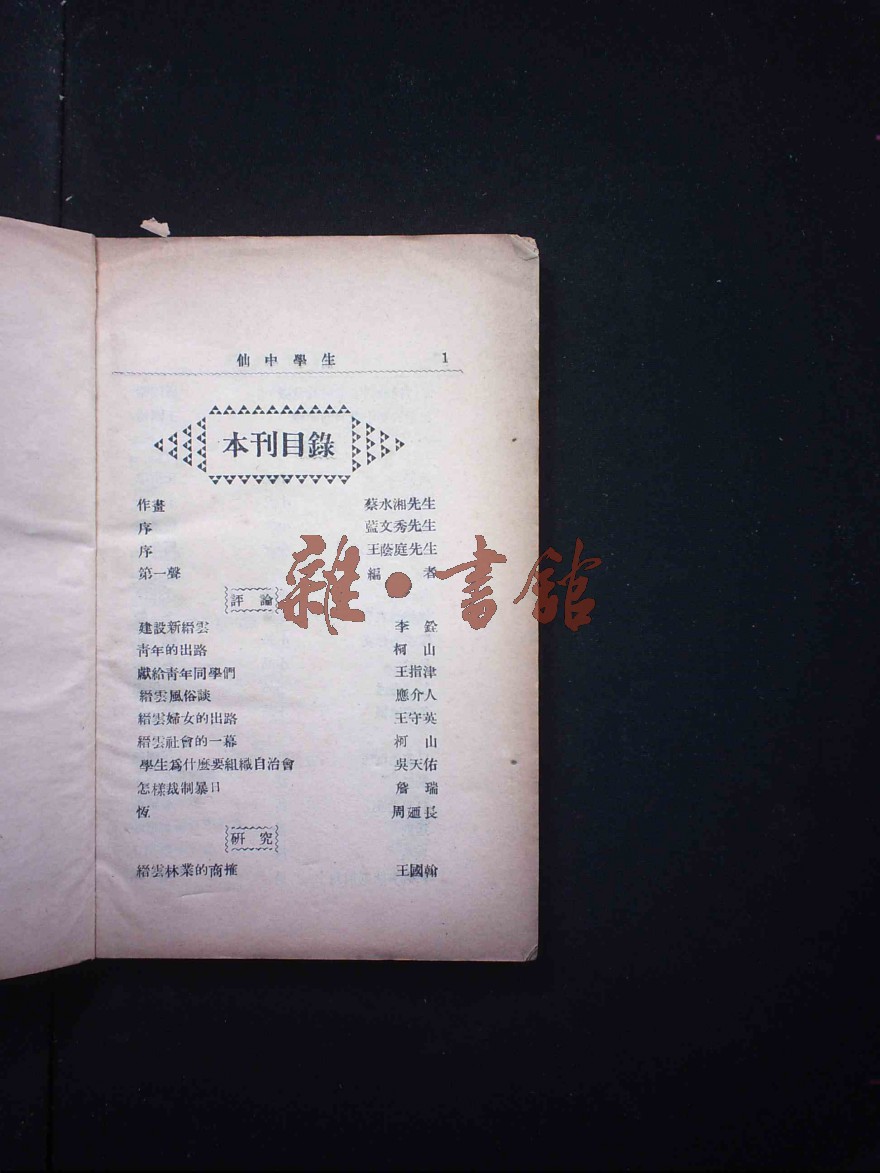 仙中學生 1
本刊目錄
作畫 蔡水湘先生
序 藍文秀先生
序 王蔭庭先生
第一聲 編者
評論
建設新縉雲 李銓
靑年的出路 柯山
獻給靑年同學們 王指津
縉雲風俗談 應介人
縉雲婦女的出路 王守英
縉雲社會的一幕 柯山
學生爲什麼要組織自治會 吳天佑
怎樣裁制暴日 詹瑞
恆 周廼長
研究
縉雲林業的商搉 王國翰
雜·書館